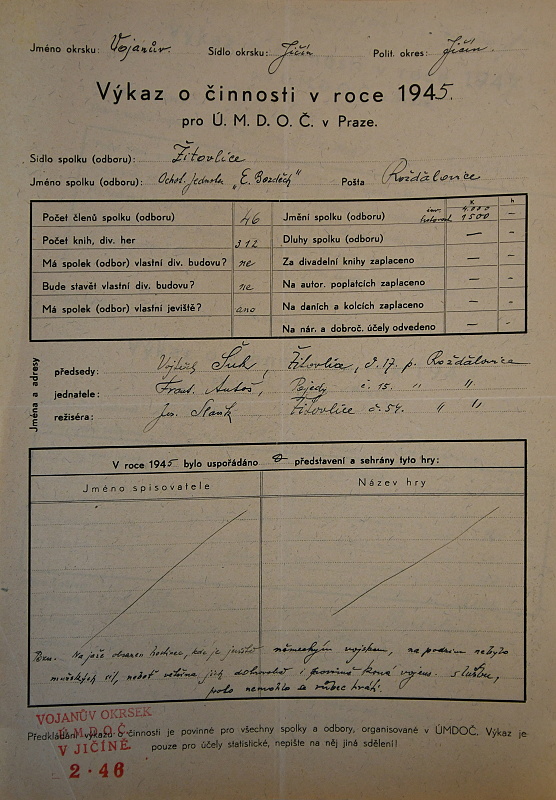 Jméno okrsku: Vojanův. Sídlo okrsku: Jičín Polit. okres: Jičín.
Výkaz o činnosti v roce 1945.
pro Ú. M. D. O. Č. v Praze.
Sídlo spolku (odboru): Žitovlice
Jméno spolku (odboru): Ochot. jednota "E. Bozděch" Pošta Rožďálovice
K h
Počet členů spolku (odboru) 46 Jmění spolku (odboru) inv. 4.000 hotovost 1500 —
Počet knih, div. her 312 Dluhy spolku (odboru) — -
Má spolek (odbor) vlastní div. budovu? ne Za divadelní knihy zaplaceno — -
Bude stavět vlastní div. budovu? ne Na autor. poplatcích zaplaceno — -
Má spolek (odbor) vlastní jeviště? ano Na daních a kolcích zaplaceno — -
Na nár. a dobroč. účely odvedeno — -
Jména a adresy
předsedy: Šuk, Žitovlice, č. 17. p. Rožďálovice
jednatele: Frant. Antoš, č. 15. " "
režiséra: Jos. Žitovlice č. 54. " "
V roce 1945 bylo uspořádáno 0 představení a sehrány tyto hry:
Jméno spisovatele Název hry
Pozn. Na jaře obsazen hostinec, kde je jeviště německým vojskem, na podzim nebylo
mužských sil, neboť většina jich vojens. službu,
proto nemohlo se vůbec hráti.
VOJANŮV OKRSEK
Ú.M.D.O.Č.
V JIČÍNĚ.
2 · 46
Předkládání výkazu o činnosti je povinné pro všechny spolky a odbory, organisované v ÚMDOČ. Výkaz je
pouze pro účely statistické, nepište na něj jiná sdělení!